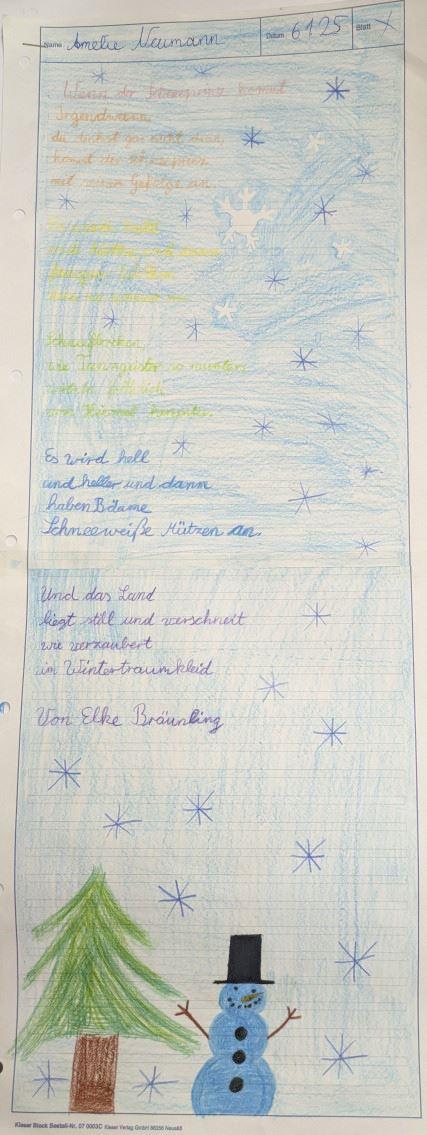 Name Amelie Neumann Datum 6 1 25 Blatt X
Wenn der Schneeprinz kommt
Irgendwann,
du denkst gar nicht dran,
kommt der Schneeprinz
mit seinem Gefolge an.
Es wird kalt
und kälter und dann
Schneeflocken,
wie Tanzgeister so munter,
vom Himmel herunter.
Es wird hell
und heller und dann
haben Bäume
Schneeweiße Mützen an.
Und das Land
liegt still und verschneit
wie verzaubert
im Wintertraumkleid
Von Elke Bräunling
Klaser Block Bestell-Nr. 07 0003C Klaser Verlag GmbH